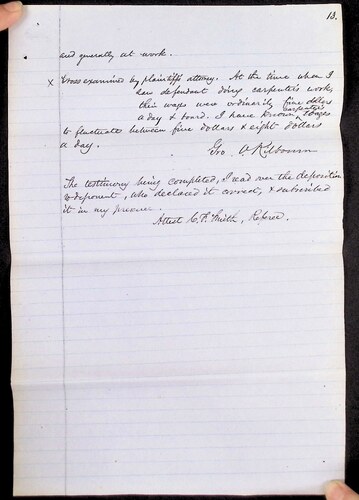 13.
and generally at work.
x Cross examined by plaintiffs attorney. At the time when I
saw defendant doing carpenter's work,
their wages were ordinarily five dollars
a day & board. I have known carpenter's wages
to fluctuate between five dollars & eight dollars
a day.
Geo. O. Kilbourn
The testimony being completed, I read over the deposition
to deponent, who declared it correct, & subscribed
it in my presence.
Attest C. F. Smith, Referee.